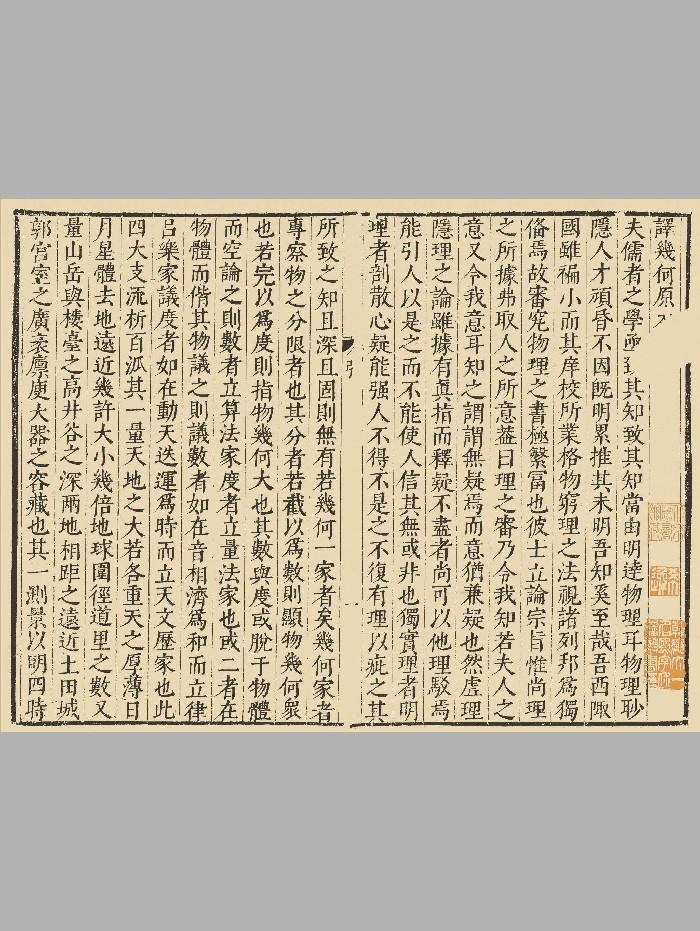 譯幾何原
夫儒者之學亟其知致其知當由明達物理耳物理眇
隱人才頑昏不因旣明累推其未明吾知奚至哉吾西陬
國雖褊小而其庠校所業格物窮理之法視諸列邦爲獨
備焉故審究物理之書極繁冨也彼士立論宗旨惟尚理
之所據弗取人之所意葢曰理之審乃令我知若夫人之
意又令我意耳知之謂謂無疑焉而意猶兼疑也然虛理
隱理之論雖據有眞指而釋疑不盡者尚可以他理駁焉
能引人以是之而不能使人信其無或非也獨實理者明
理者剖散心疑能强人不得不是之不復有理以疵之其
引
一
所致之知且深且固則無有若幾何一家者矣幾何家者
專察物之分限者也其分者若截以爲數則顯物幾何衆
也若完以爲度則指物幾何大也其數與度或脫于物體
而空論之則數者立算法家度者立量法家也或二者在
物體而偕其物議之則議數者如在音相濟爲和而立律
呂樂家議度者如在動天迭運爲時而立天文歷家也此
四大支流析百派其一量天地之大若各重天之厚薄日
月星體去地遠近幾許大小幾倍地球圍徑道里之數又
量山岳與樓臺之高井谷之深兩地相距之遠近土田城
郭宮室之廣袤廩庾大器之容藏也其一測景以明四時